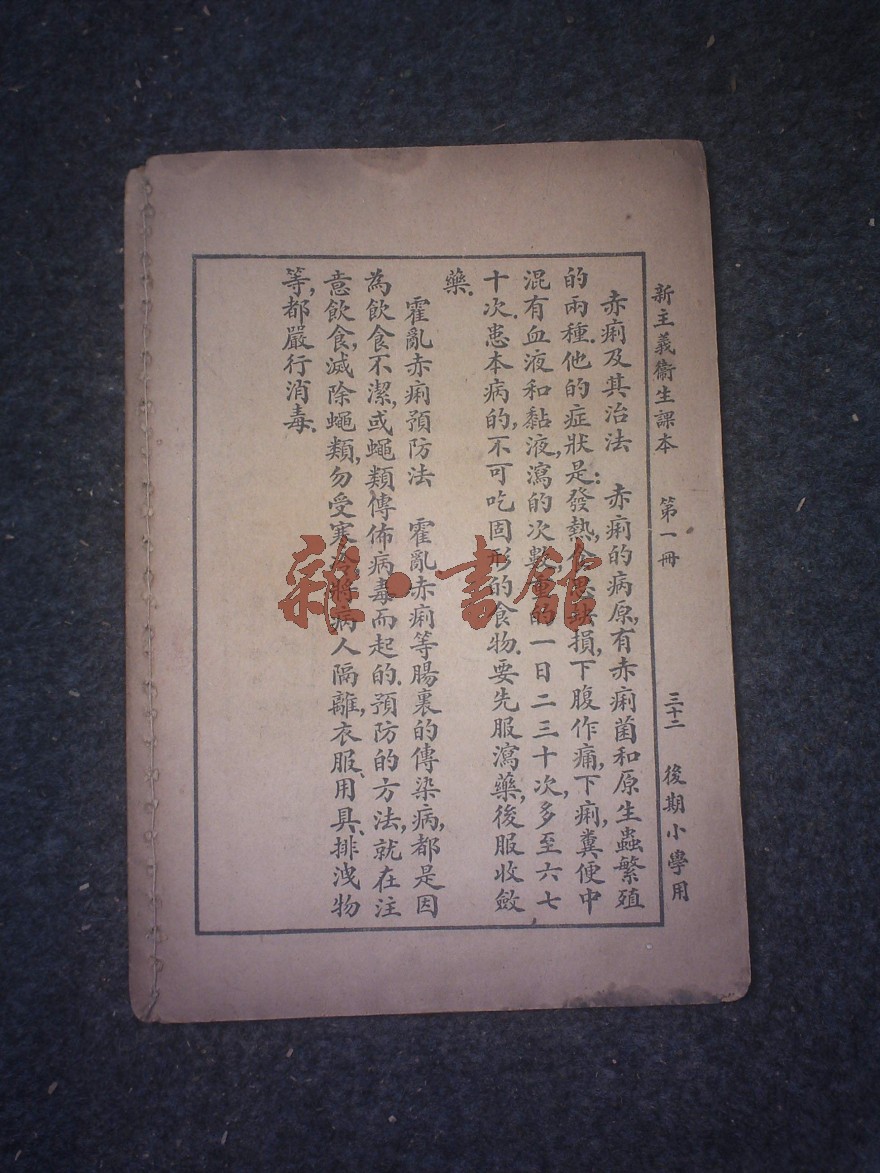 新主義衞生課本 第一冊 三十二 後期小學用
赤痢及其治法 赤痢的病原,有赤痢菌和原生蟲繁殖
的兩種.他的症狀是:發熱,食思缺損,下腹作痛,下痢,糞便中
混有血液和黏液,瀉的次數,重的一日二三十次,多至六七
十次.患本病的,不可吃固形的食物.要先服瀉藥,後服收斂
藥.
霍亂赤痢預防法 霍亂赤痢等腸裏的傳染病,都是因
為飲食不潔,或蠅類傳佈病毒而起的.預防的方法,就在注
意飲食,滅除蠅類,勿受寒冷,將病人隔離,衣服、用具、排洩物
等,都嚴行消毒.
雜·書館